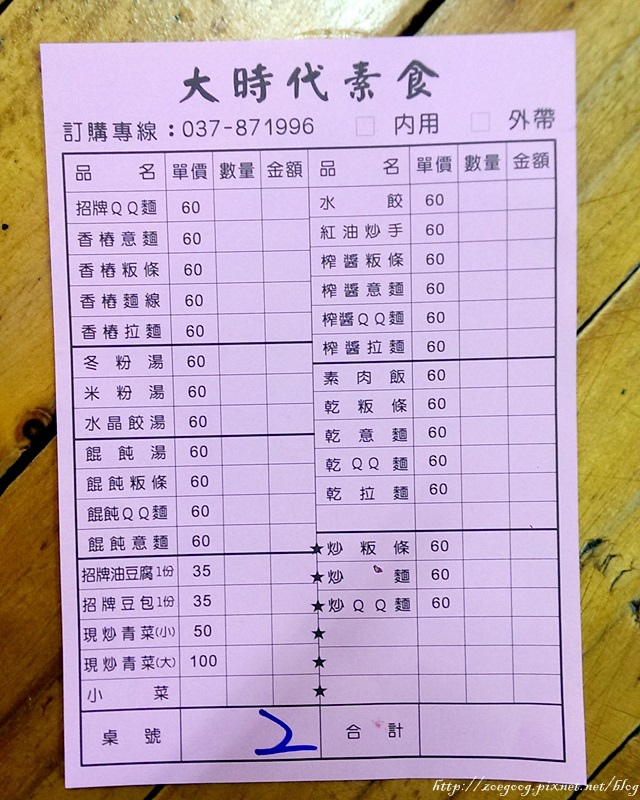 大時代素食
訂購專線：037-871996 □ 內用 □ 外帶
品名 單價 數量 金額 品名 單價 數量 金額
招牌QQ麵 60 水餃 60
香椿意麵 60 紅油炒手 60
香椿粄條 60 榨醬粄條 60
香椿麵線 60 榨醬意麵 60
香椿拉麵 60 榨醬QQ麵 60
冬粉湯 60 榨醬拉麵 60
米粉湯 60 素肉飯 60
水晶餃湯 60 乾粄條 60
餛飩湯 60 乾意麵 60
餛飩粄條 60 乾QQ麵 60
餛飩QQ麵 60 乾拉麵 60
餛飩意麵 60
招牌油豆腐1份 35 ★炒粄條 60
招牌豆包1份 35 ★炒麵 60
現炒青菜(小) 50 ★炒QQ麵 60
現炒青菜(大) 100 ★
小菜 ★
★
桌號 2 合計
http://zoegoog.pixnet.net/blog